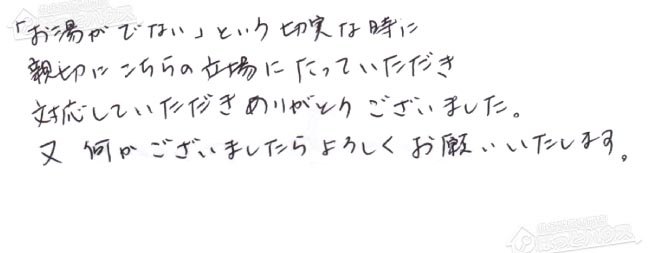 「お湯がでない」という切実な時に
親切にこちらの立場にたっていただき
対応していただきありがとうございました。
又 何かございましたらよろしくお願いいたします。